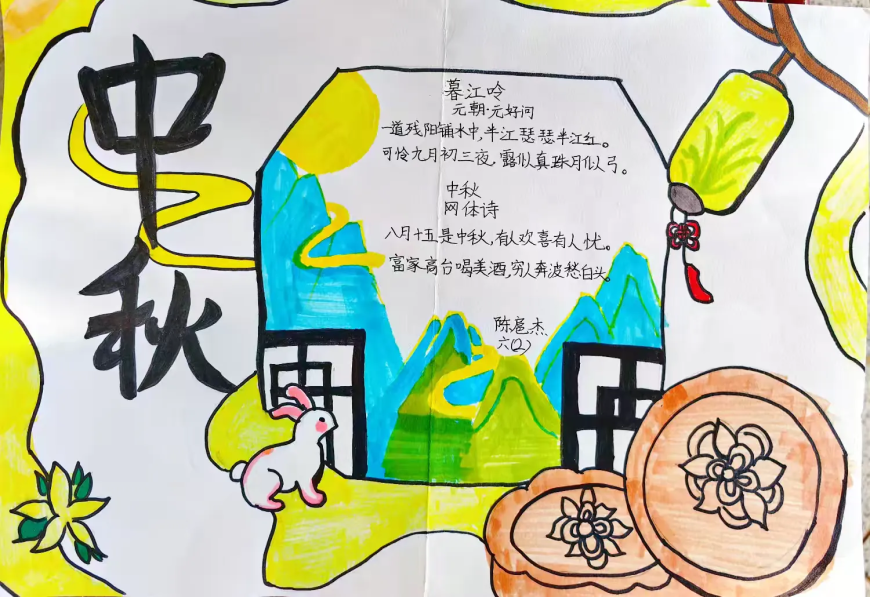 中秋
暮江吟
元朝·元好问
一道残阳铺水中,半江瑟瑟半江红。
可怜九月初三夜,露似真珠月似弓。
中秋
网体诗
八月十五是中秋,有人欢喜有人忧。
富家高台喝美酒,穷人奔波愁白头。
陈扈杰
六(2)